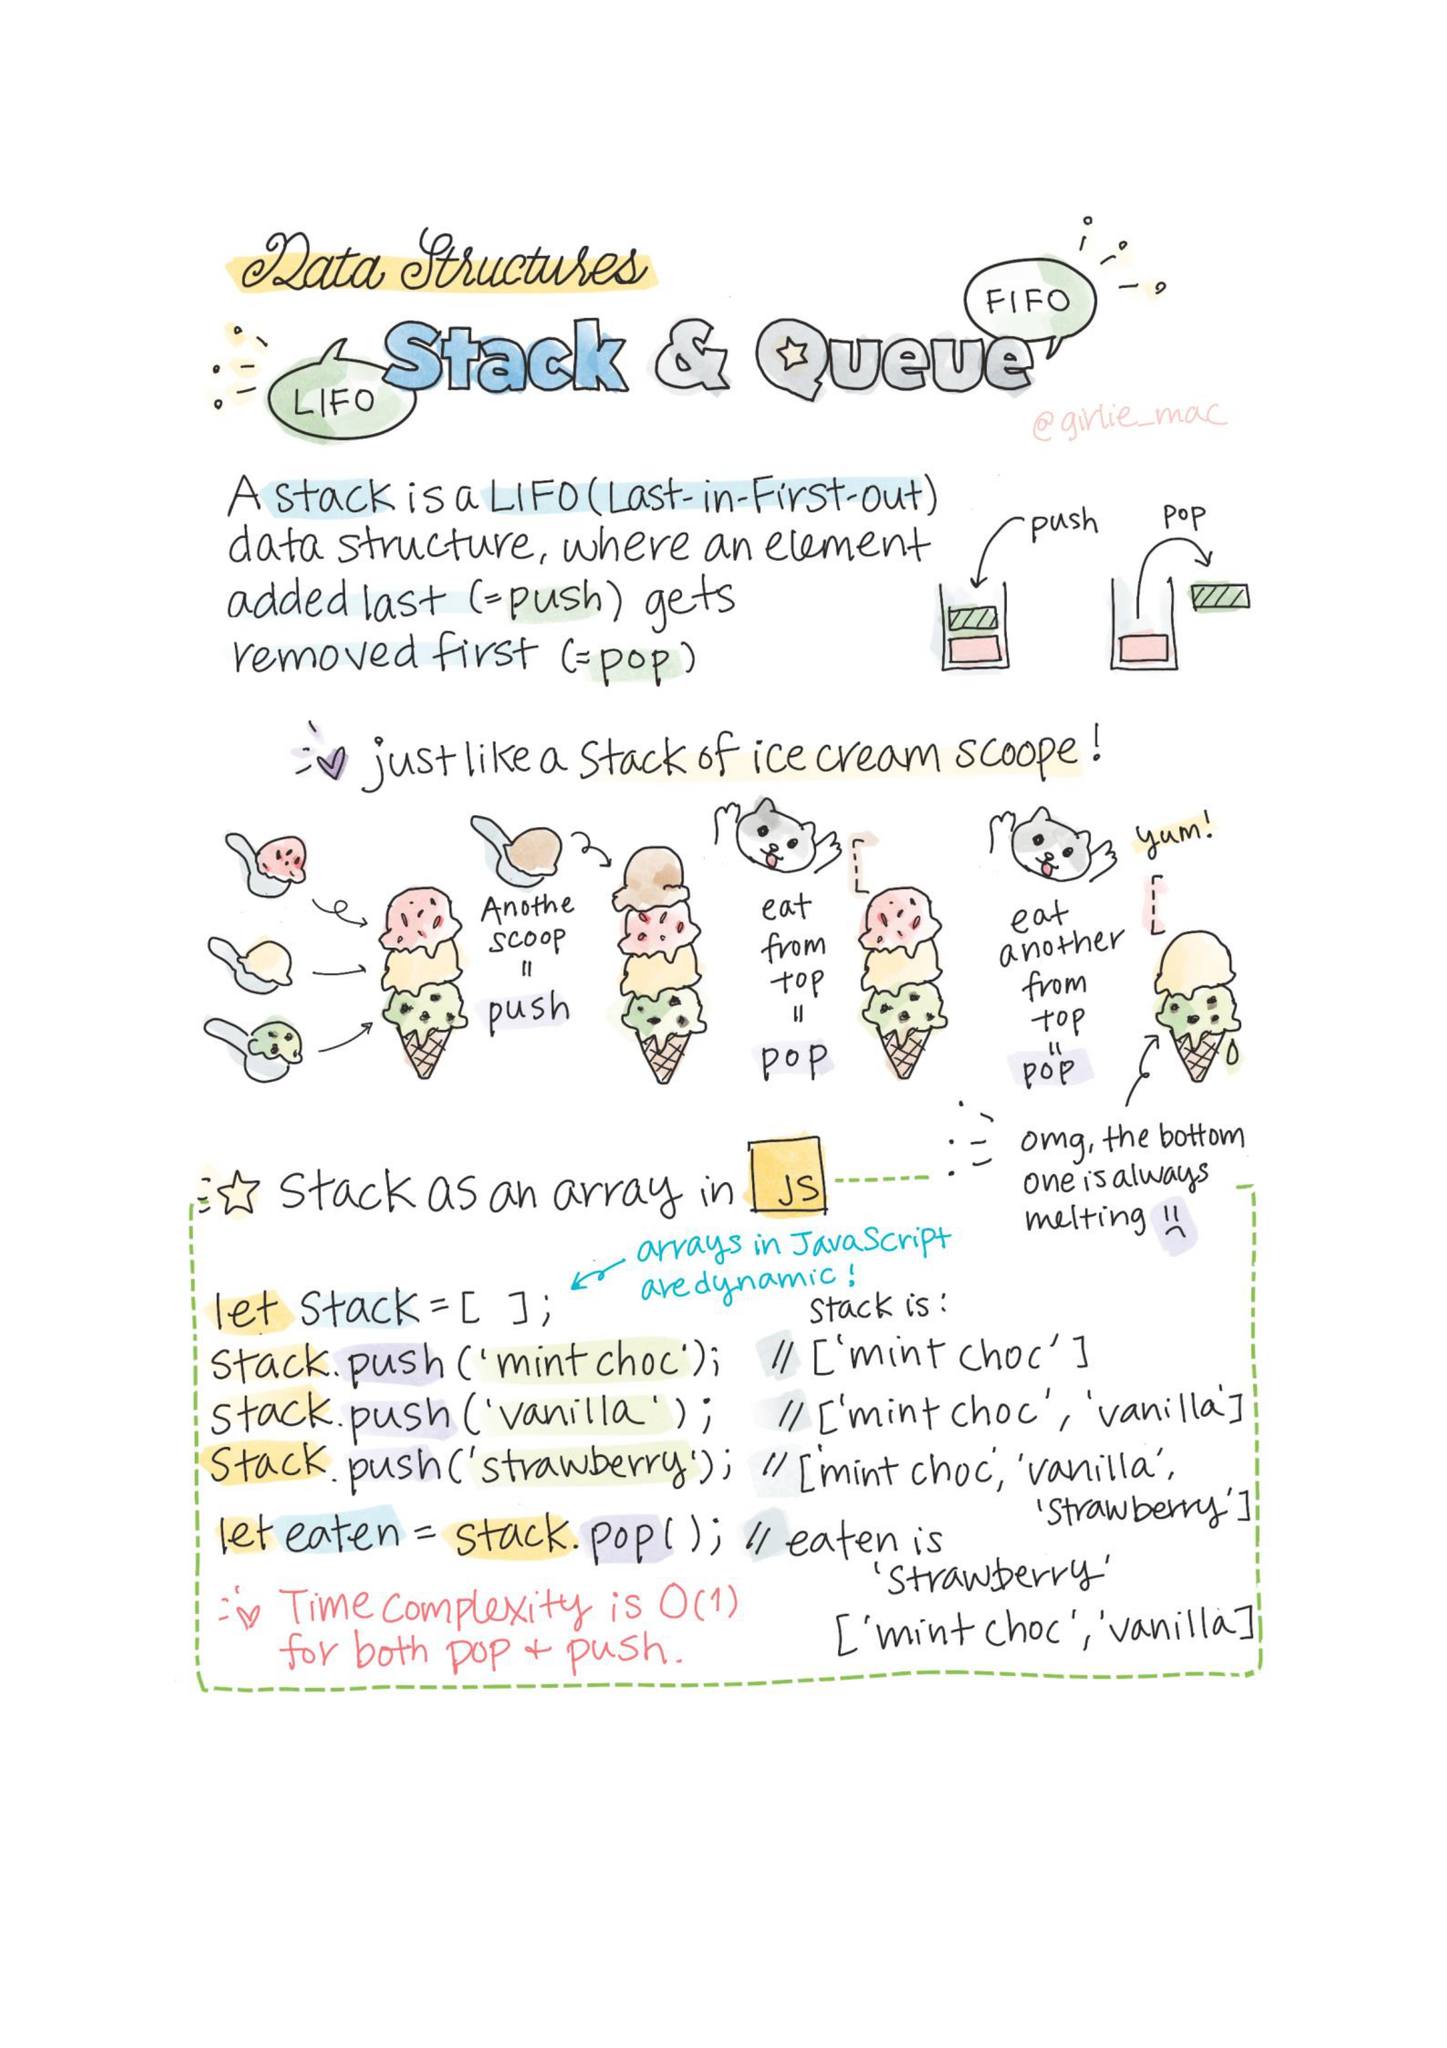 Data Structures
FIFO
Stack & Queue
LIFO
@girlie_mac
A stack is a LIFO (Last-in-First-out)
data structure, where an element
added last (=push) gets
removed first (=pop)
push
pop
just like a stack of ice cream scoope!
Anothe
scoop
=
push
eat
from
top
=
pop
eat
another
from
top
=
pop
yum!
omg, the bottom
one is always
melting
Stack as an array in JS
arrays in JavaScript
are dynamic!
let stack = [ ];
stack is:
stack.push ('mint choc'); // ['mint choc']
stack.push ('vanilla'); // ['mint choc', 'vanilla']
Stack.push('strawberry'); // ['mint choc', 'vanilla',
'strawberry']
let eaten = stack.pop(); // eaten is
'strawberry'
['mint choc', 'vanilla]
Time complexity is O(1)
for both pop + push.